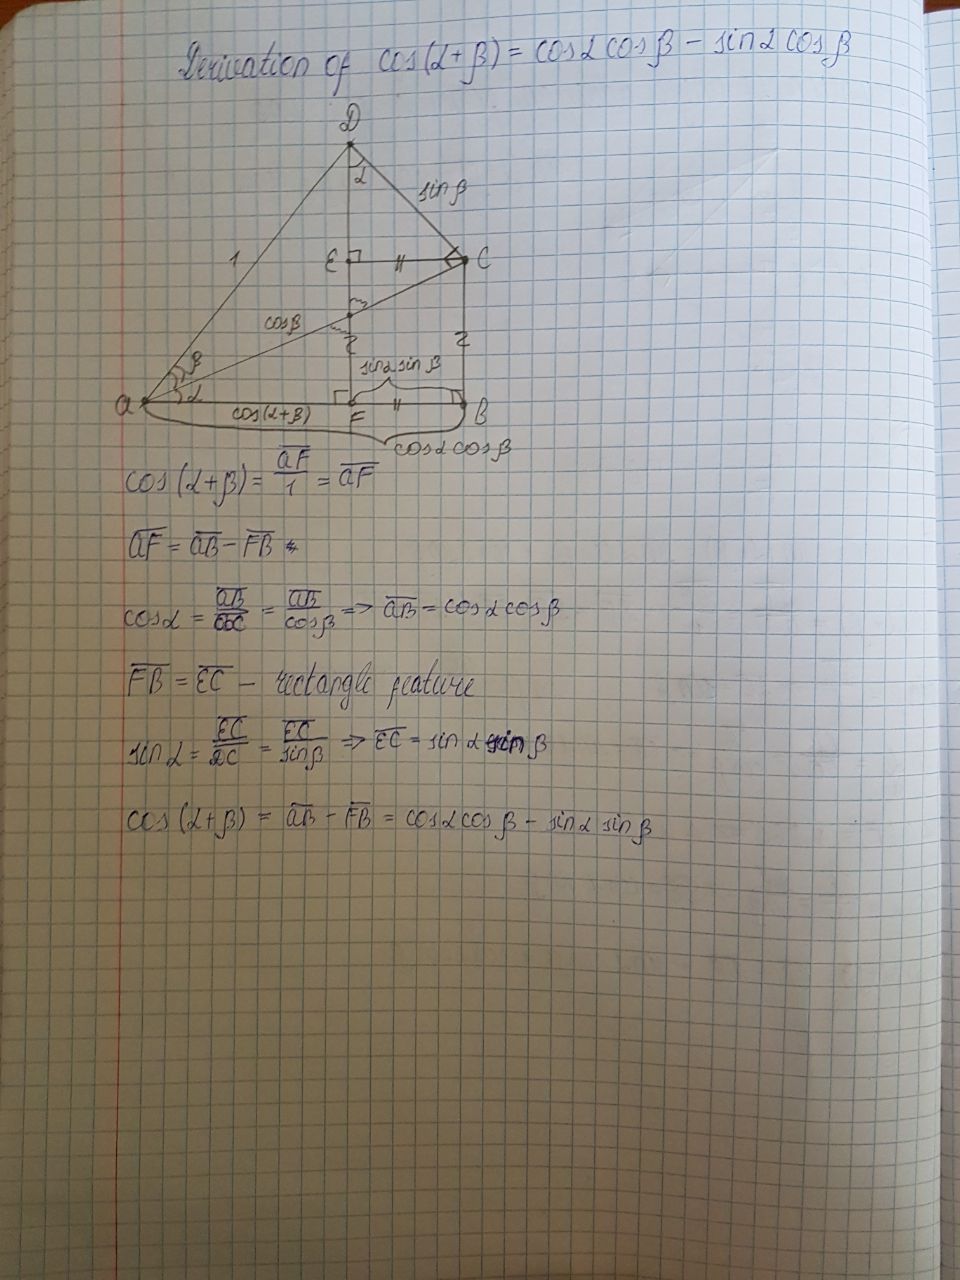 Derivation of cos(α+β) = cosα cosβ − sinα cosβ
D
α
sinβ
1
E
C
cosβ
β
α
sinα sinβ
a
cos(α+β)
F
B
cosα cosβ
cos(α+β) = aF/1 = aF
aF = aB − FB
cosα = aB/aC = aB/cosβ => aB = cosα cosβ
FB = EC − rectangle feature
sinα = EC/DC = EC/sinβ => EC = sinα sinβ
cos(α+β) = aB − FB = cosα cosβ − sinα sinβ